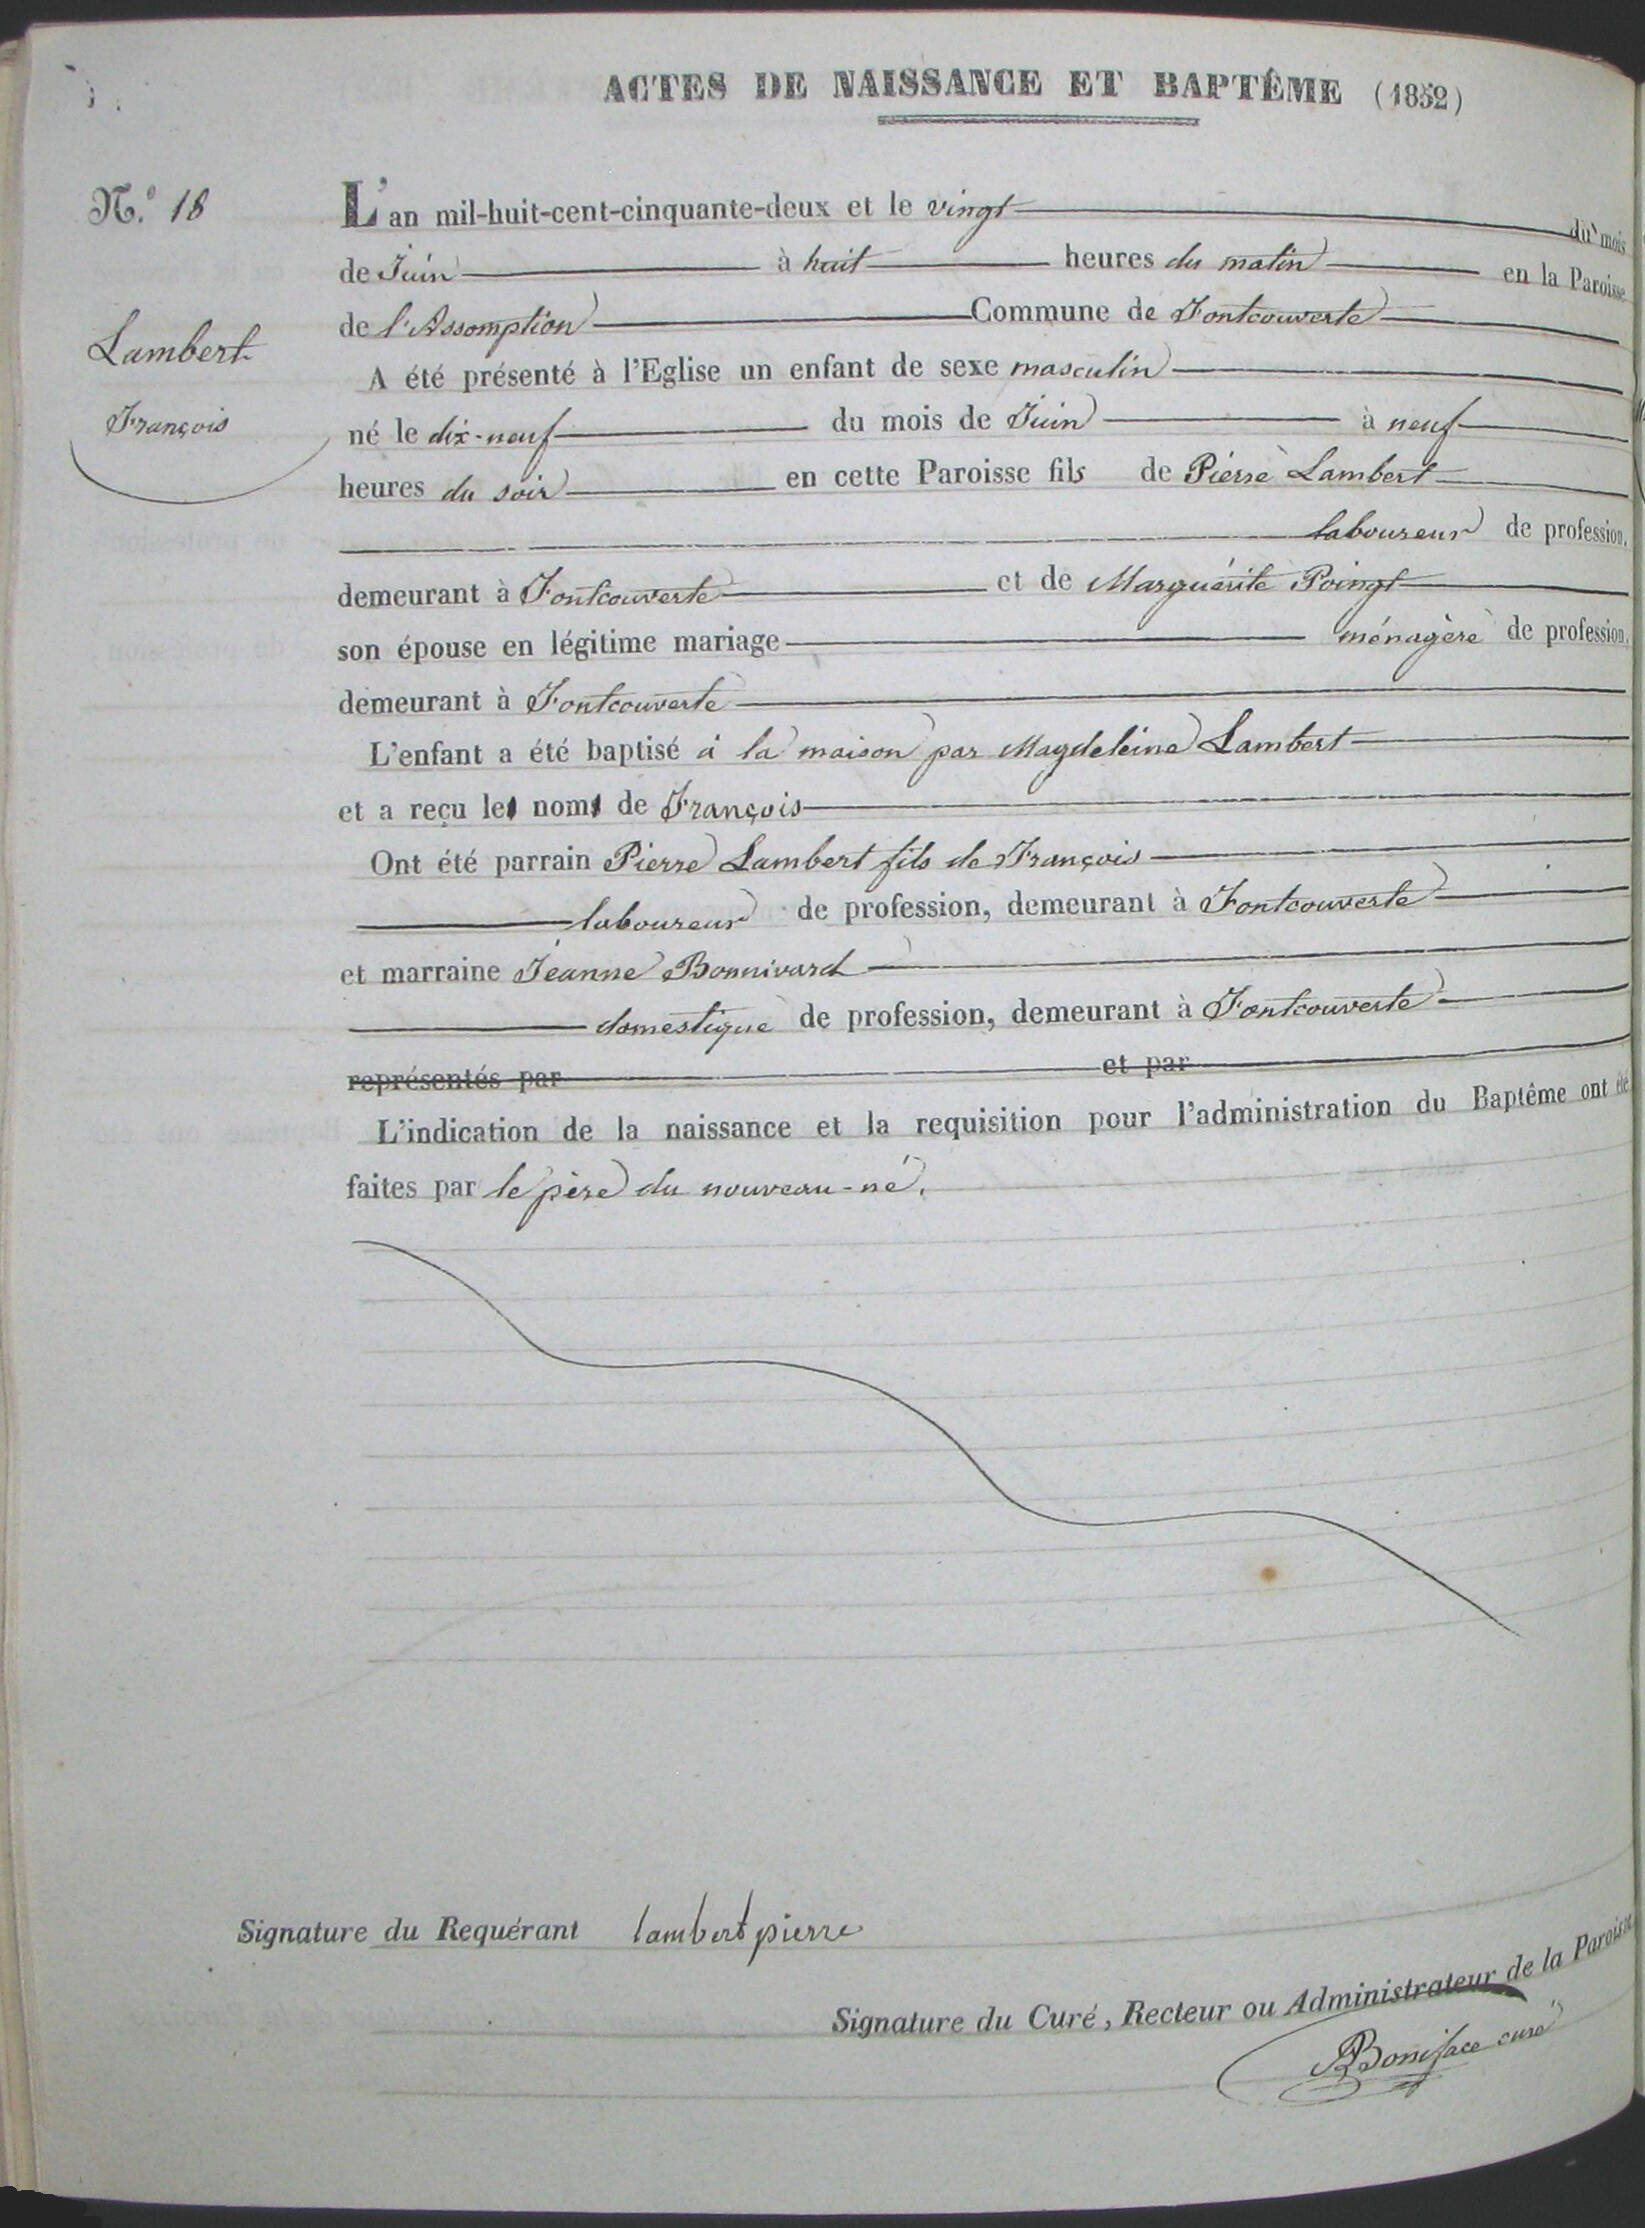 ACTES DE NAISSANCE ET BAPTÊME (1852)
N.º 18
L'an mil-huit-cent-cinquante-deux et le vingt du mois
de Juin à huit heures du matin en la Paroisse
de l'Assomption Commune de Fontcouverte
Lambert
François
A été présenté à l'Eglise un enfant de sexe masculin
né le dix-neuf du mois de Juin à neuf
heures du soir en cette Paroisse fils de Pierre Lambert
laboureur de profession,
demeurant à Fontcouverte et de Marguérite Poingt
son épouse en légitime mariage ménagère de profession,
demeurant à Fontcouverte
L'enfant a été baptisé à la maison par Magdeleine Lambert
et a reçu le nom de François
Ont été parrain Pierre Lambert fils de François
laboureur de profession, demeurant à Fontcouverte
et marraine Jeanne Bonnivard
domestique de profession, demeurant à Fontcouverte
représentés par et par
L'indication de la naissance et la requisition pour l'administration du Baptême ont été
faites par le père du nouveau-né.
Signature du Requérant lambert pierre
Signature du Curé, Recteur ou Administrateur de la Paroisse
Boniface curé